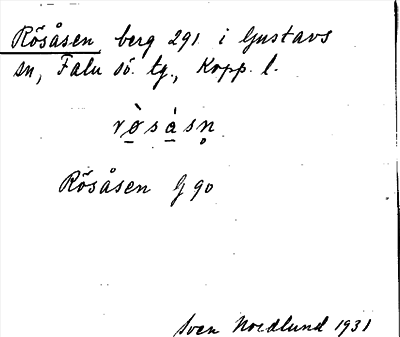 Rösåsen berg 291 i Gustavs
sn, Falu sö. tg., Kopp. l.
rø̀sàsn̥
Rösåsen G 90
Sven Nordlund 1931